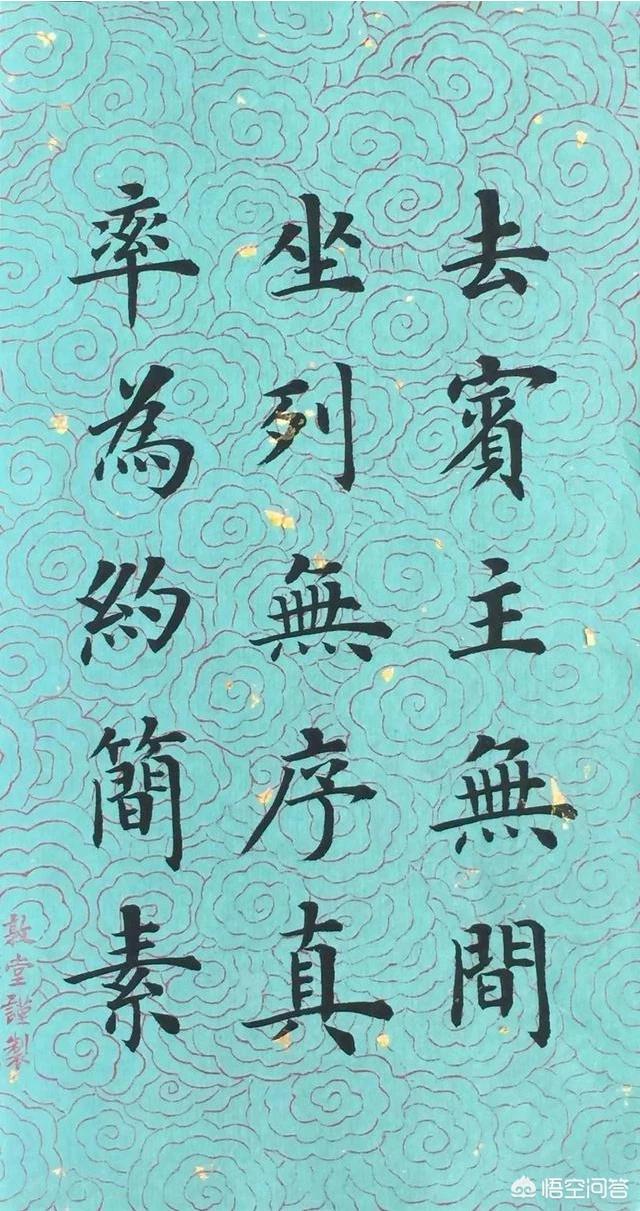 去賓主無間
坐列無序真
率為約簡素
敦堂謹製
悟空问答